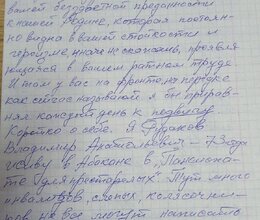 вашей беззаветной преданности
нашей Родине, которая постоян-
но видна в вашей стойкости и
героизме иначе не скажешь, проявля-
ющаяся в вашем ратном труде
И там у вас на фронте, на передке
как сейчас называют я бы прирав-
нял каждый день к подвигу
Коротко о себе. Я
Владимир Анатольевич - 73 года
живу в Абакане в "Пансиона-
те для престарелых" Тут много
инвалидов, слепых, колясочни-
ков не все могут написать